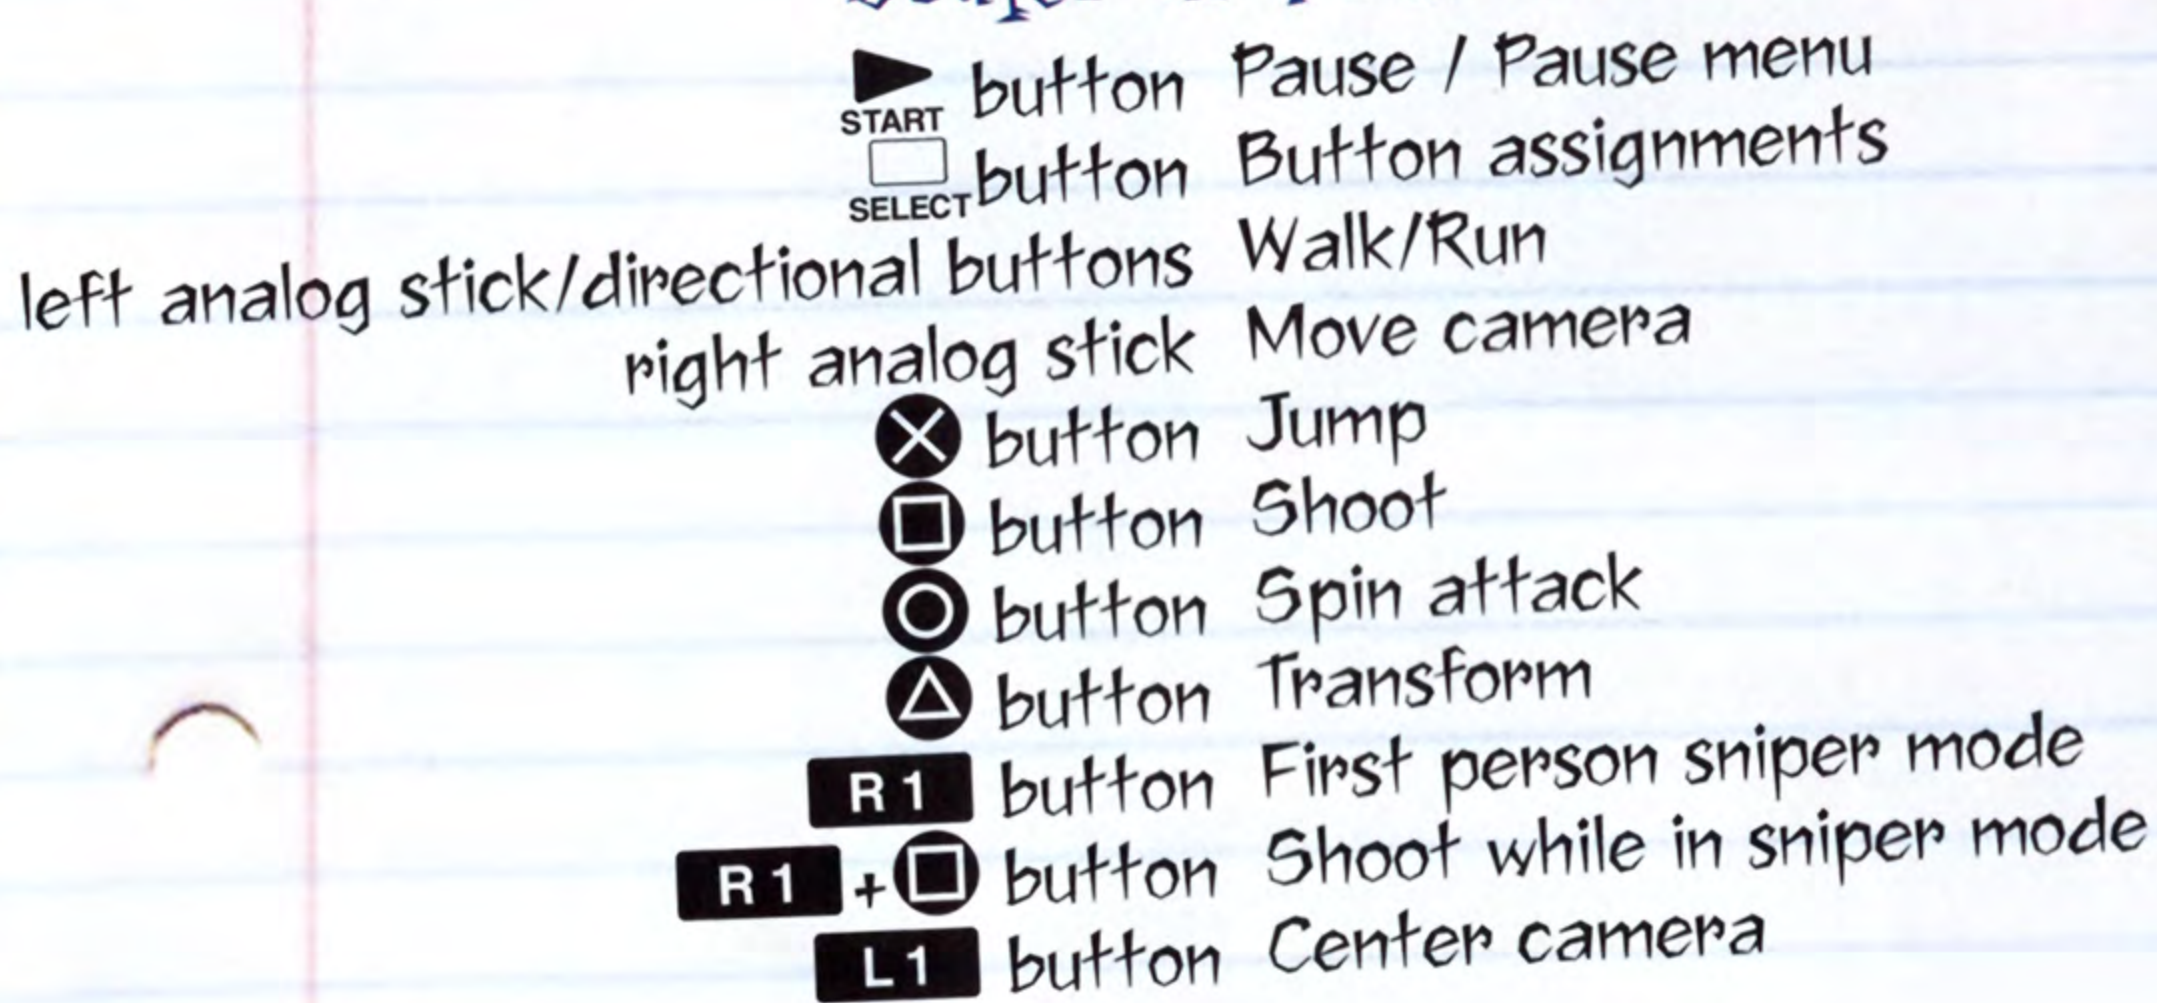 START button Pause / Pause menu
SELECT button Button assignments
left analog stick/directional buttons Walk/Run
right analog stick Move camera
button Jump
button Shoot
button Spin attack
button Transform
R1 button First person sniper mode
R1 + button Shoot while in sniper mode
L1 button Center camera